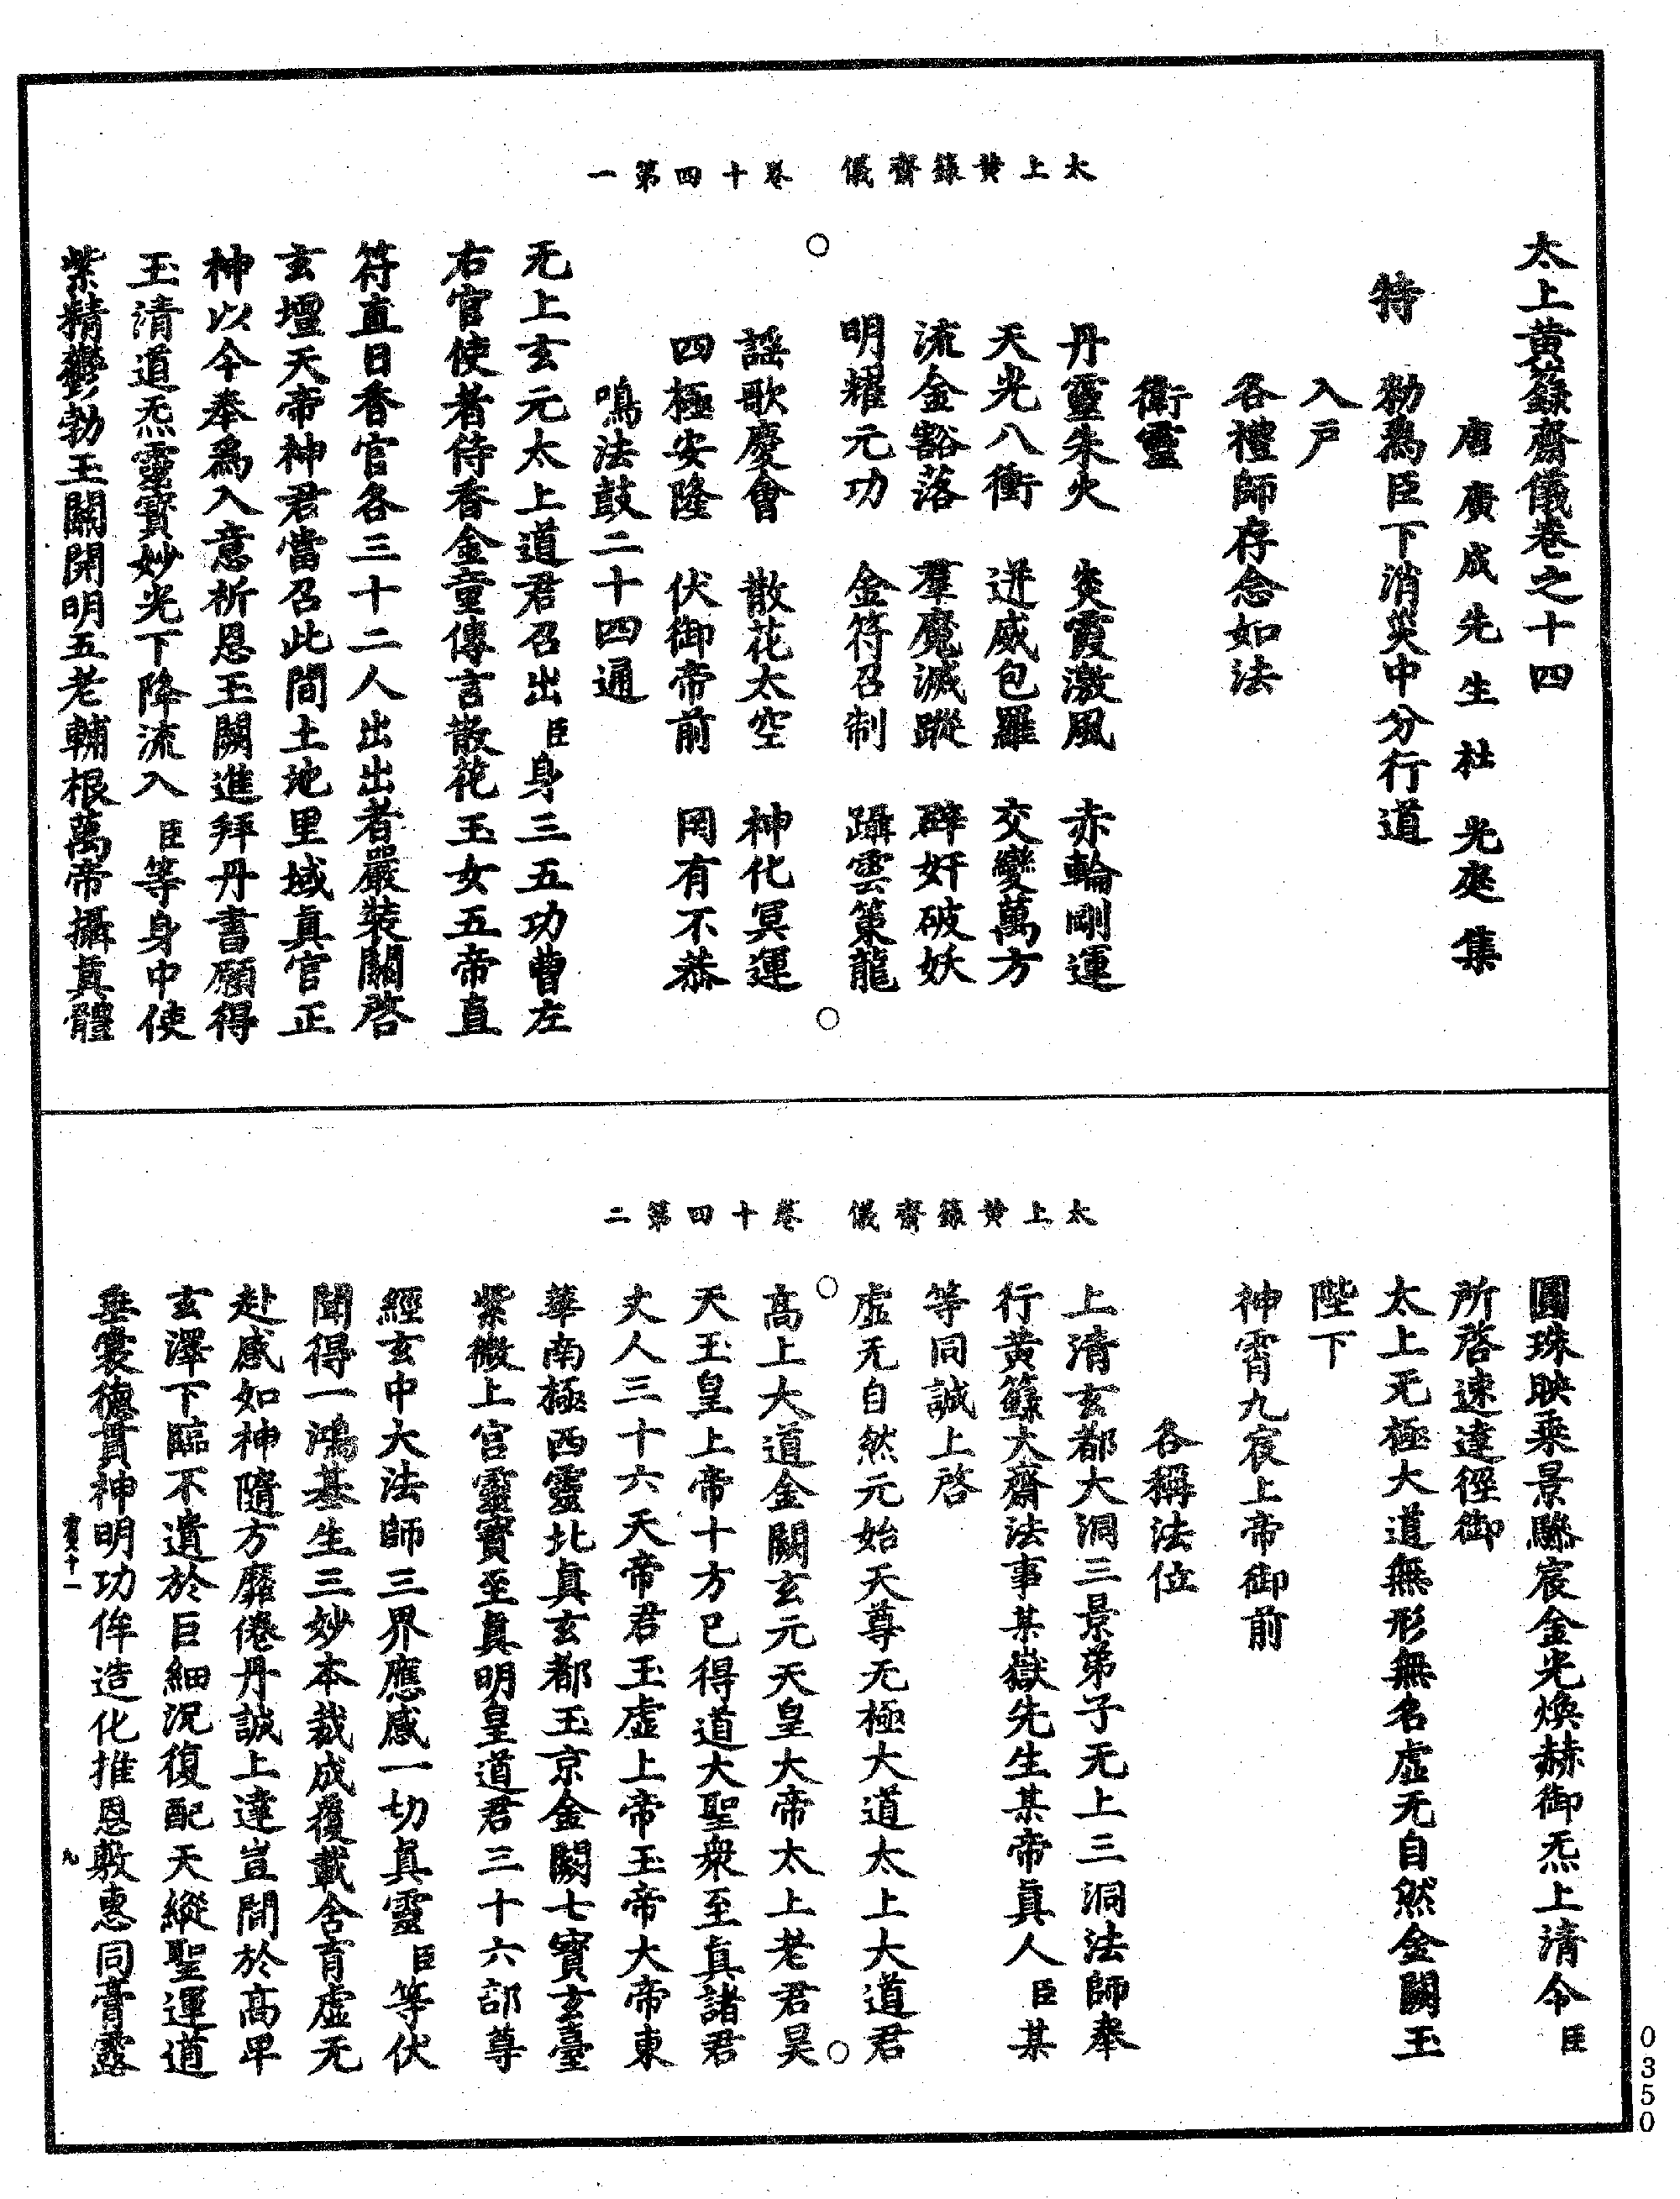 太上黃籙齋儀　卷十四第一
太上黃籙齋儀卷之十四
唐廣成先生杜光庭集
特　勑為臣下消災中分行道
入戶
各禮師存念如法
衛靈
丹靈朱火　炎霞激風　赤輪剛運
天光八衝　迸威包羅　交變萬方
流金豁落　羣魔滅蹤　碎奸破妖
明耀元功　金符召制　躡雲策龍
謡歌慶會　散花太空　神化冥運
四極安隆　伏御帝前　罔有不恭
鳴法鼓二十四通
无上玄元太上道君召出臣身三五功曹左
右官使者侍香金童傳言散花玉女五帝直
符直日香官各三十二人出出者嚴裝關啓
玄壇天帝神君當召此間土地里域真官正
神以今奉爲入意祈恩玉闕進拜丹書願得
玉清道炁靈寶妙光下降流入臣等身中使
紫精鬱勃玉闕開明五老輔根萬帝攝真體
太上黃籙齋儀　卷十四第二
圓珠映乗景驂宸金光煥赫御炁上清令臣
所啓速達徑御
太上无極大道無形無名虛无自然金闕玉
陛下
神霄九宸上帝御前
各稱法位
上清玄都大洞三景弟子无上三洞法師奉
行黃籙大齋法事某嶽先生某帝真人臣某
等同誠上啓
虛无自然元始天尊无極大道太上大道君
高上大道金闕玄元天皇大帝太上老君昊
天玉皇上帝十方已得道大聖衆至真諸君
丈人三十六天帝君玉虛上帝玉帝大帝東
華南極西靈北真玄都玉京金闕七寶玄臺
紫微上宮靈寶至真明皇道君三十六部尊
經玄中大法師三界應感一切真靈臣等伏
聞得一鴻基生三妙本裁成覆載含育虛无
赴感如神隨方靡倦丹誠上達豈間於高卑
玄澤下臨不遺於巨細況復配天縱聖運道
垂裳德貫神明功侔造化推恩敷惠同膏露
九
0350